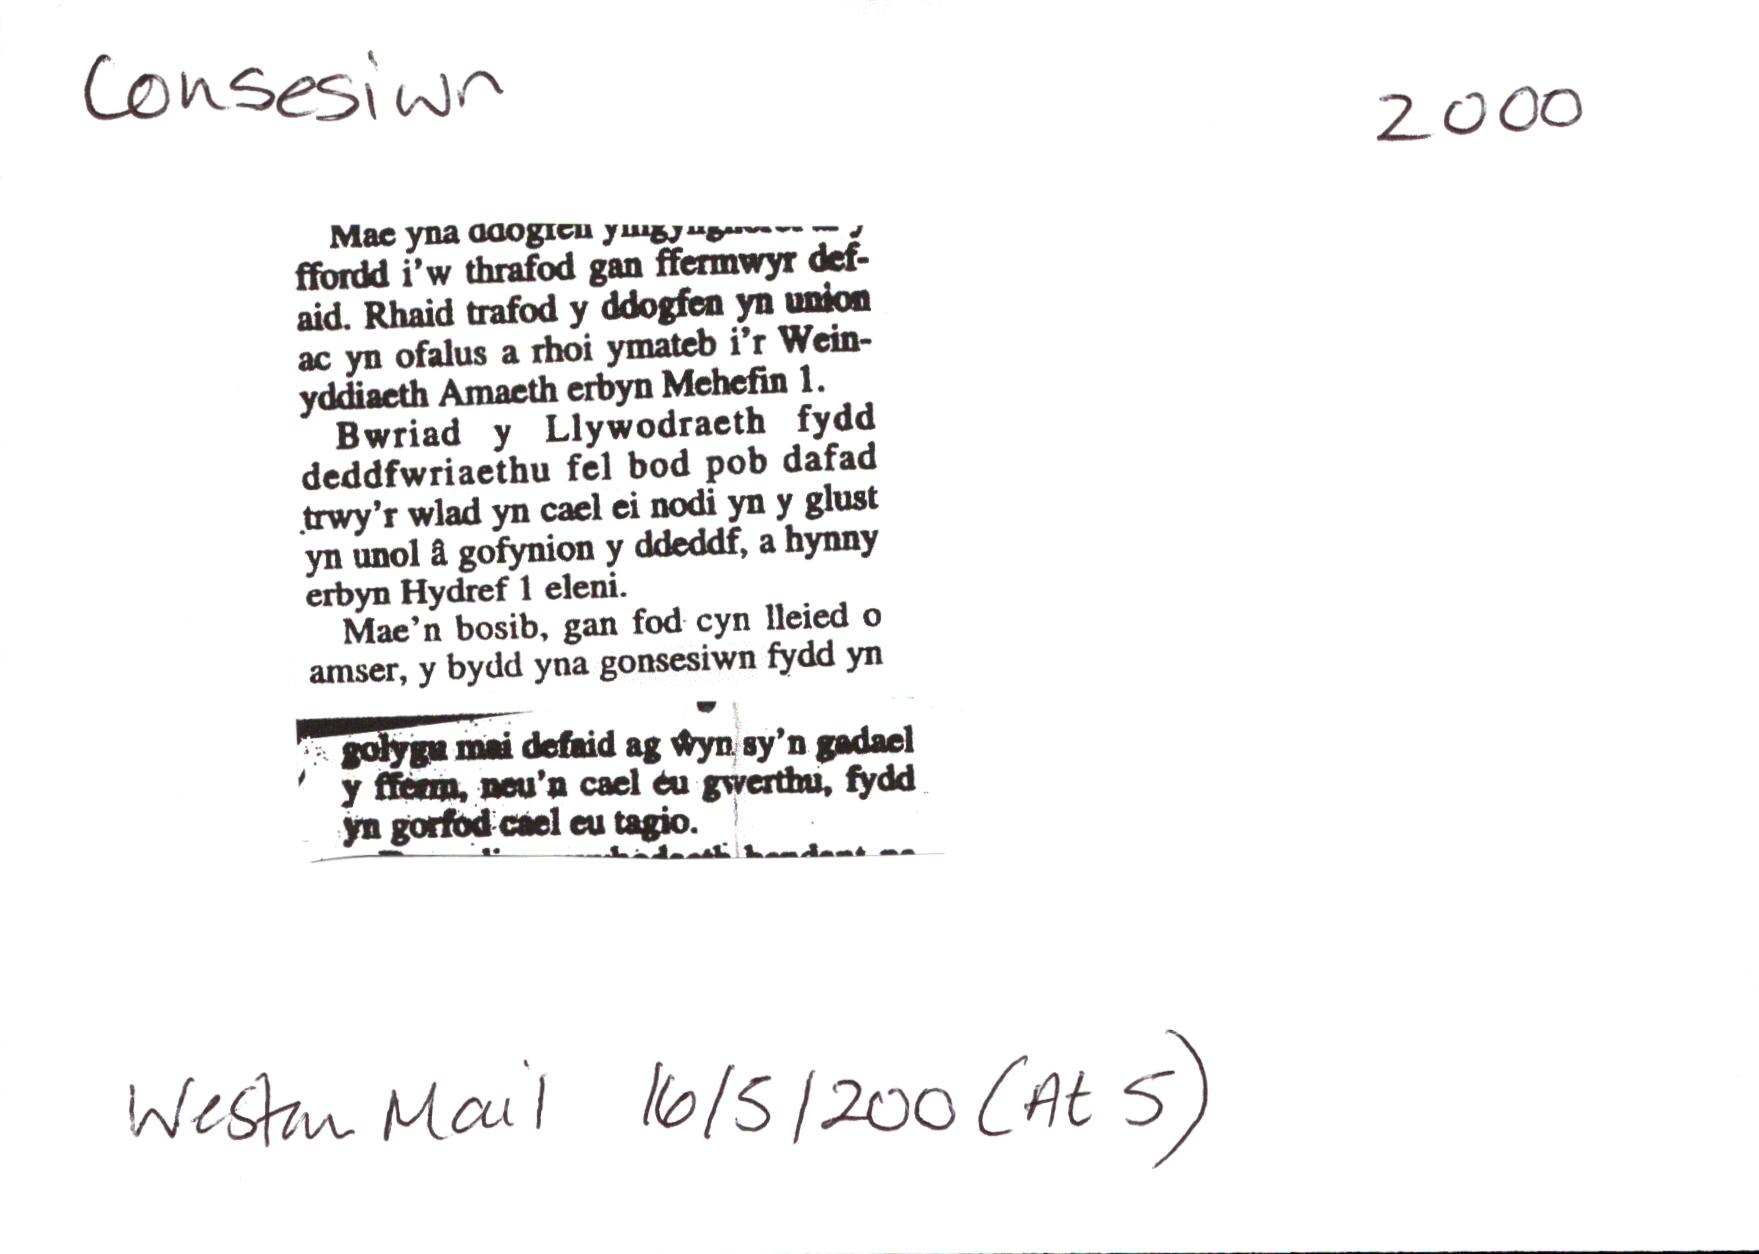 Consesiwn
2000
Mae yna ddogfen
ffordd i'w thrafod gan ffermwyr def-
aid. Rhaid trafod y ddogfen yn union
ac yn ofalus a rhoi ymateb i'r Wein-
yddiaeth Amaeth erbyn Mehefin 1.
Bwriad y Llywodraeth fydd
deddfwriaethu fel bod pob dafad
trwy'r wlad yn cael ei nodi yn y glust
yn unol â gofynion y ddeddf, a hynny
erbyn Hydref 1 eleni.
Mae'n bosib, gan fod cyn lleied o
amser, y bydd yna gonsesiwn fydd yn
golygu mai defaid ag ŵyn sy'n gadael
y fferm, neu'n cael eu gwerthu, fydd
yn gorfod cael eu tagio.
Western Mail 16/5/200 (At 5)